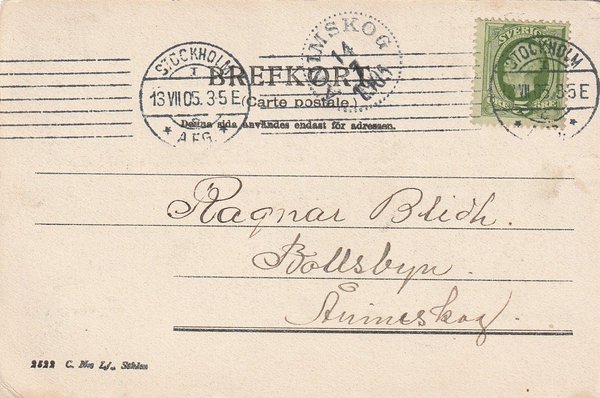 STOCKHOLM
1
13 VII 05. 3 5 E
A.FG.
ÅNIMSKOG
14
7
1905
SVERIGE
STOCKHOLM
VII 05. 3 5 E
BREFKORT
(Carte postale.)
Denna sida användes endast för adressen.
Ragnar Blidh.
Bollsbyn.
Ånimskog.
2522